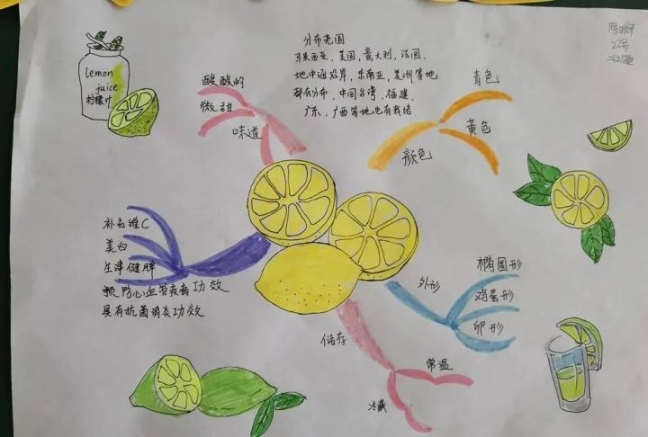 Lemon
juice
柠檬汁
分布范围
马来西亚、美国、意大利、法国、
地中海沿岸、东南亚、美洲等地
都有分布,中国台湾、福建、
广东、广西等地也有栽培
22号
酸酸的
微甜
味道
青色
黄色
颜色
补充维C
美白
生津健脾
预防心血管疾病功效
具有抗菌消炎功效
外形
椭圆形
鸡蛋形
卵形
储存
常温
冷藏